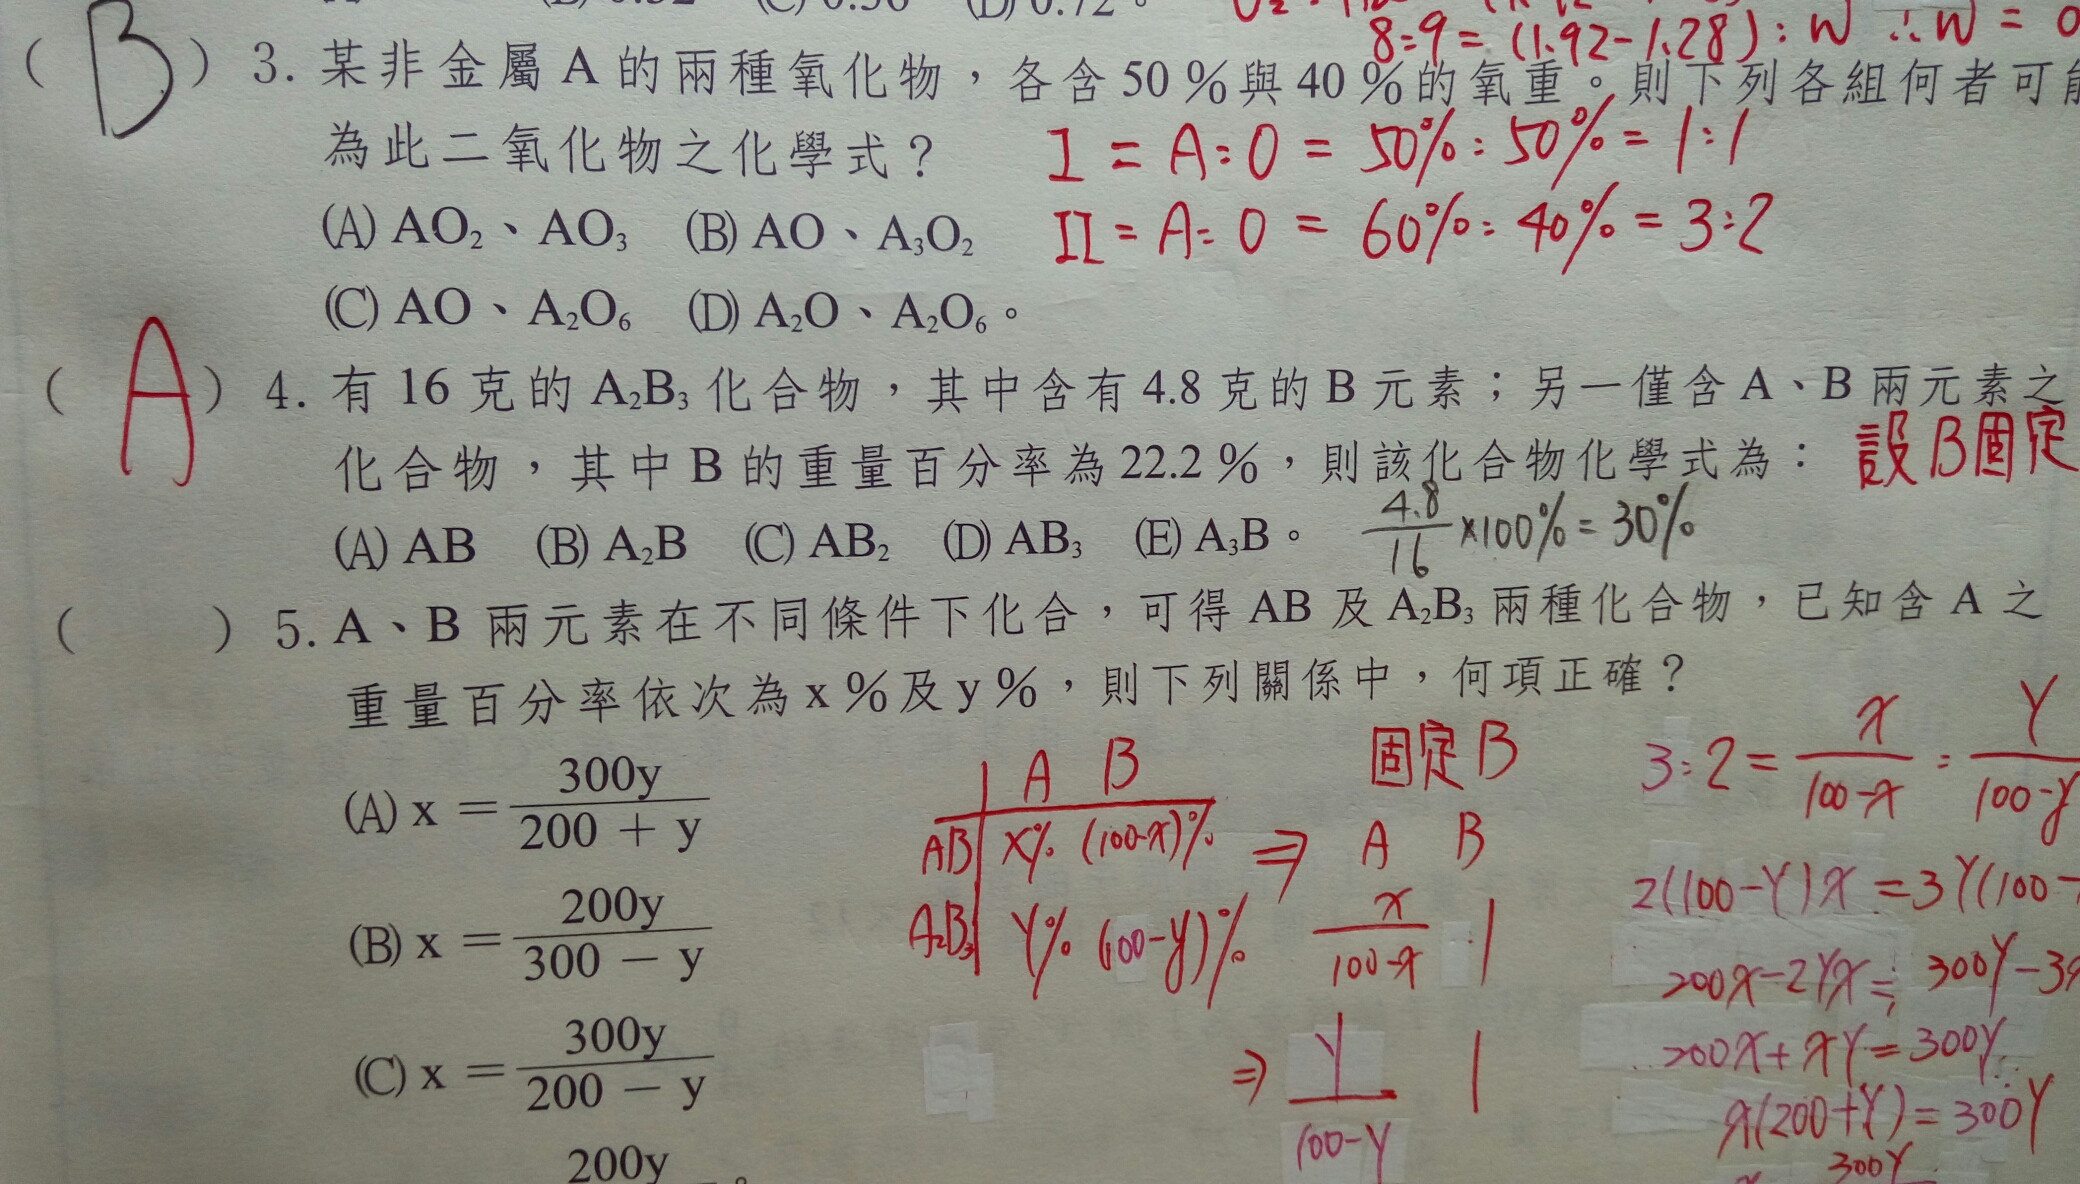 8:9 = (1.92-1.28) : W ∴ W = 0
( B ) 3. 某非金屬 A 的兩種氧化物，各含 50 %與 40 %的氧重。則下列各組何者可能
為此二氧化物之化學式？
I = A:O = 50% : 50% = 1:1
(A) AO₂、AO₃ (B) AO、A₃O₂
II = A:O = 60% : 40% = 3:2
(C) AO、A₂O₆ (D) A₂O、A₂O₆。
( A ) 4. 有 16 克的 A₂B₃ 化合物，其中含有 4.8 克的 B 元素；另一僅含 A、B 兩元素之
化合物，其中 B 的重量百分率為 22.2 %，則該化合物化學式為：
設B固定
(A) AB (B) A₂B (C) AB₂ (D) AB₃ (E) A₃B。
4.8/16 ×100% = 30%
( ) 5. A、B 兩元素在不同條件下化合，可得 AB 及 A₂B₃ 兩種化合物，已知含 A 之
重量百分率依次為 x %及 y %，則下列關係中，何項正確？
(A) x = 300y/200 + y
(B) x = 200y/300 − y
(C) x = 300y/200 − y
200y 。
A B
AB x% (100-x)%
A₂B₃ Y% (100-y)%
固定B
⇒ A B
x/100-x 1
⇒ Y/100-Y 1
3:2 = x/100-x : Y/100-y
2(100-Y)x = 3Y(100-
200x-2Yx = 300Y-3
200x + xY = 300Y
x(200+Y) = 300Y
300Y